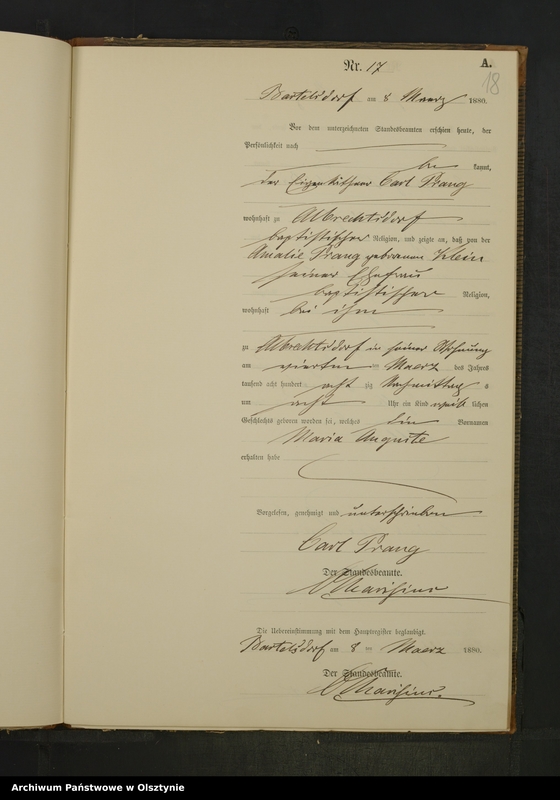 Nr. 17
A.
18
Bartelsdorf am 8 Maerz 1880.
Vor dem unterzeichneten Standesbeamten erschien heute, der
Persönlichkeit nach
be kannt,
der Eigenkäthner Carl Prang
wohnhaft zu Albrechtsdorf
baptistischer Religion, und zeigte an, daß von der
Amalie Prang geborenen Klein
seiner Ehefrau
baptistischer Religion,
wohnhaft bei ihm
zu Albrechtsdorf in seiner Wohnung
am vierten ten Maerz des Jahres
tausend acht hundert acht zig Nachmittag s
um acht Uhr ein Kind weib lichen
Geschlechts geboren worden sei, welches die Vornamen
Maria Auguste
erhalten habe
Vorgelesen, genehmigt und unterschrieben
Carl Prang
Der Standesbeamte.
Die Uebereinstimmung mit dem Hauptregister beglaubigt.
Bartelsdorf am 8 ten Maerz 1880.
Der Standesbeamte.
Archiwum Państwowe w Olsztynie